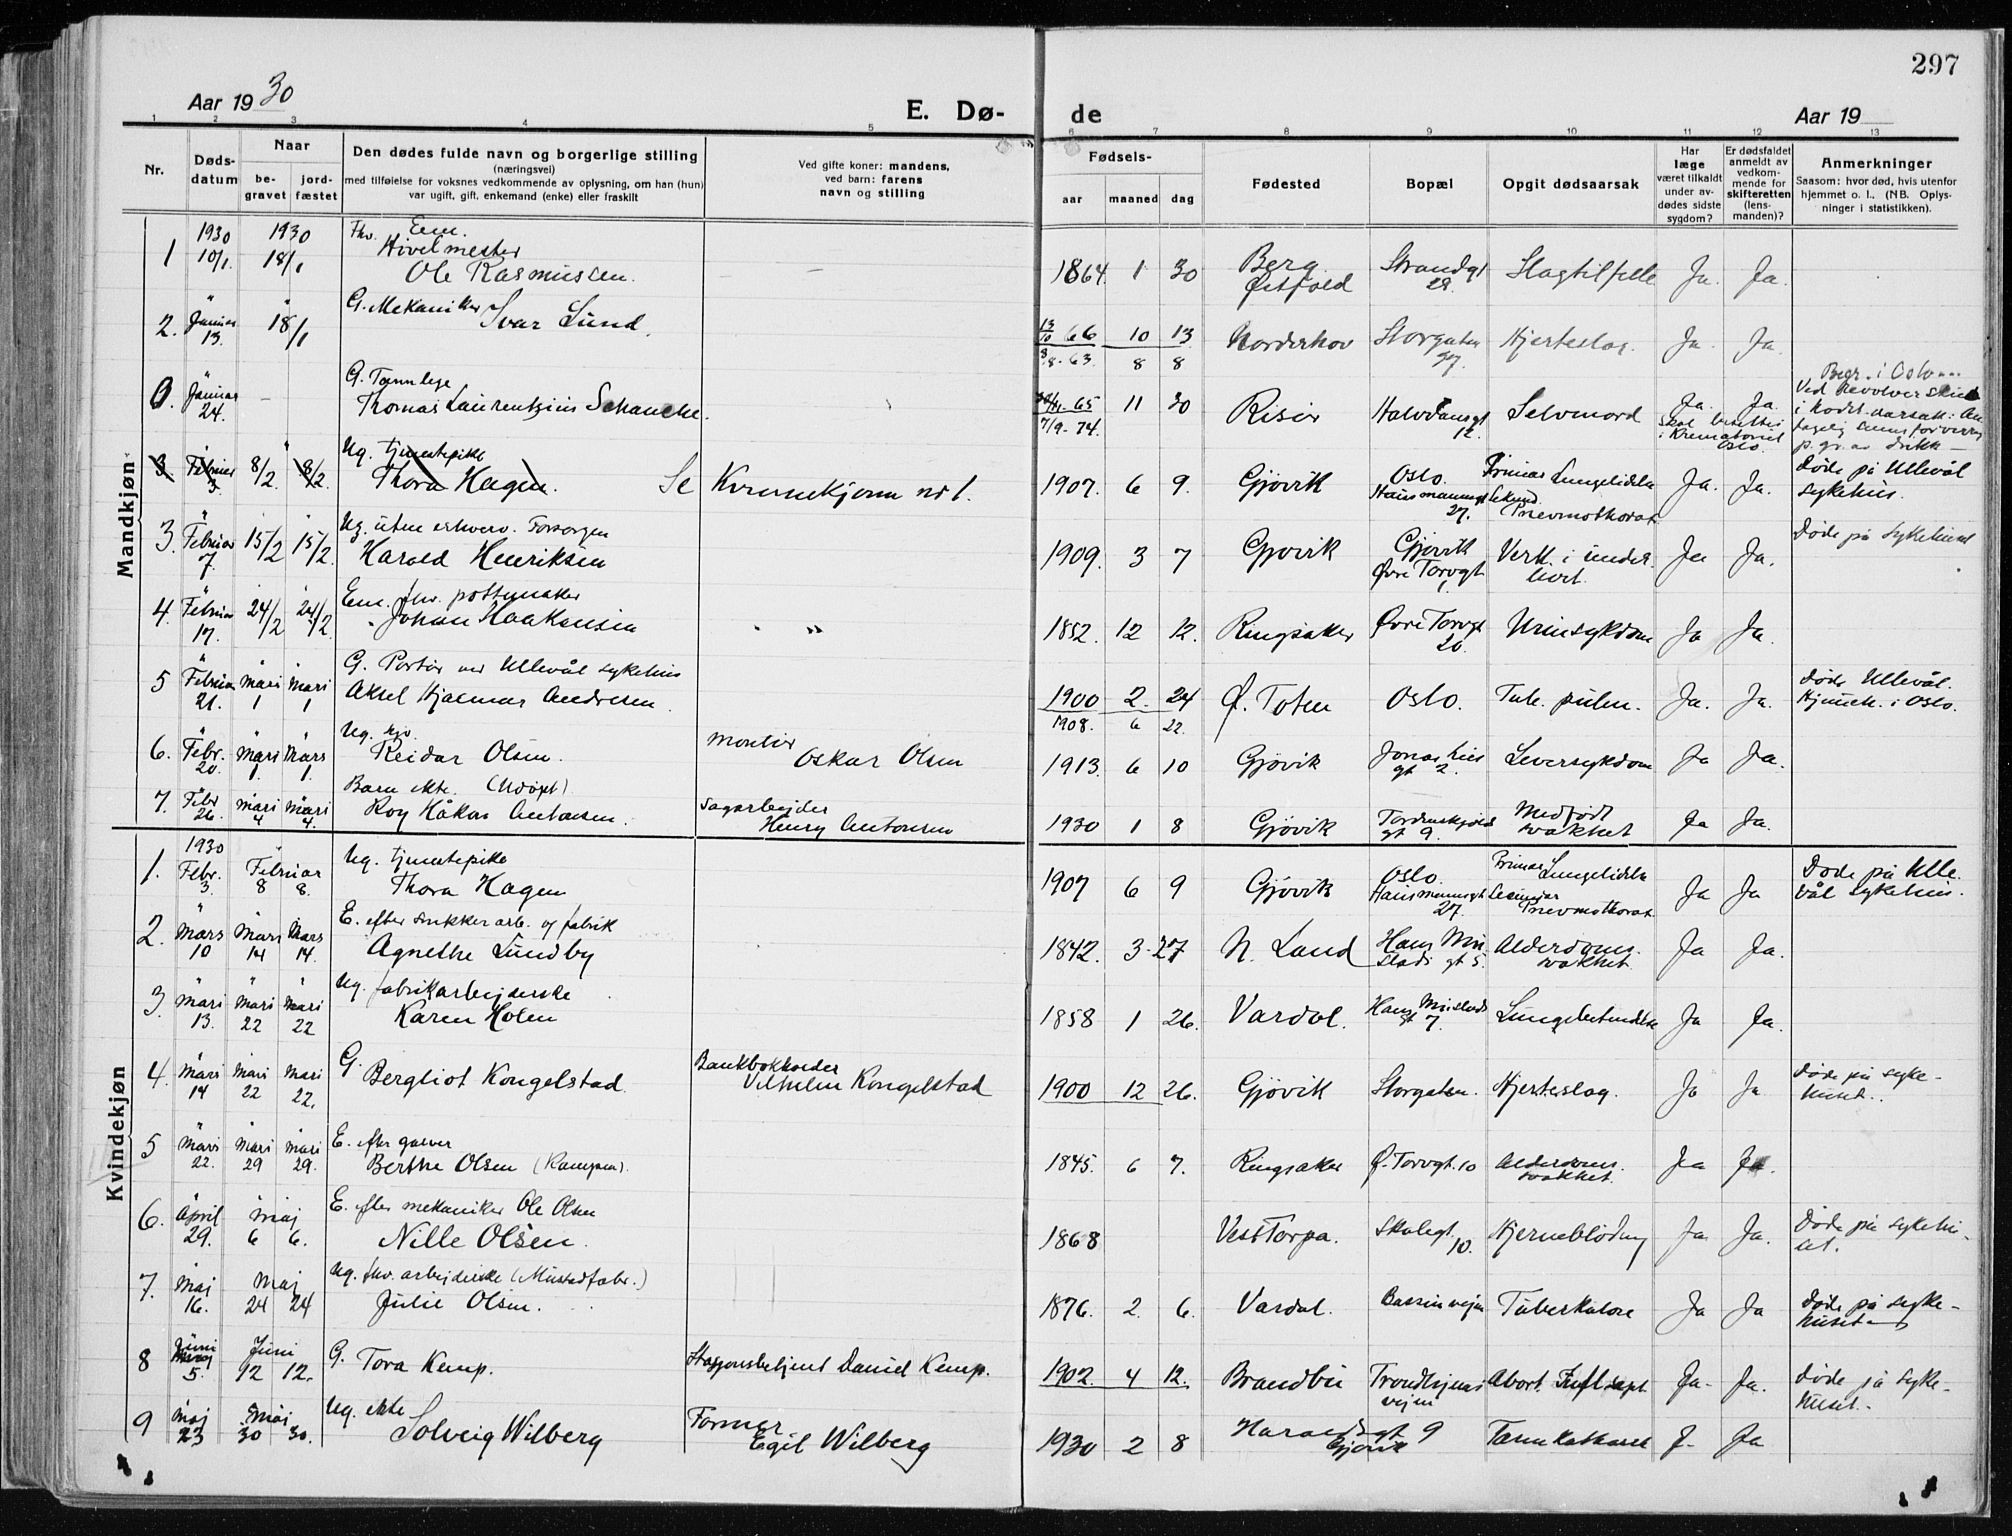 297
Aar 1930
E. Dø-
de
Aar 19
1 2 3 4 5 6 7 8 9 10 11 12 13
Nr.
Døds-
datum
Naar
be-
gravet
jord-
fæstet
Den dødes fulde navn og borgerlige stilling
(næringsvei)
med tilføielse for voksnes vedkommende av oplysning, om han (hun)
var ugift, gift, enkemand (enke) eller fraskilt
Ved gifte koner: mandens,
ved barn: farens
navn og stilling
Fødsels-
aar maaned dag
Fødested
Bopæl
Opgit dødsaarsak
Har
læge
været tilkaldt
under av-
dødes sidste
sygdom?
Er dødsfaldet
anmeldt av
vedkom-
mende for
skifteretten
(lens-
manden)?
Anmerkninger
Saasom: hvor død, hvis utenfor
hjemmet o. l., (NB. Oplys-
ninger i statistikken).
Mandkjøn
1 1930 10/1. 1930 18/1 Fhv. Em. Høvelmester
Ole Rasmussen. 1864. 1 30 Berg Østfold Strandgt 28. Slagtilfelle Ja. Ja.
2. Januar 13. 18/1 G. Mekaniker Ivar Lund. 13/10 66 10 13 Norderhov Storgaten 27. Hjerteslag. Ja. Ja.
8/8-63. 8 8
0. Januar 24. - G. Tannlege
Thomas Laurentzius Schanche. 65 11 30 Risør Halvdansgt 12. Selvmord Ja. Ja. Begr. i Oslo
7/9-74. Skal bisettes i Krematoriet Oslo. Ved Revolverskudd i hodet
p. gr. av drikk
3. Februar 3. 8/2 8/2 Ug. tjenestepike
Thora Hagen. Se Kvinnekjønn nr 1. 1907. 6 9. Gjøvik Oslo. Hausmannsgt 27. Primær Lungelidelse Sekund. Pnevmothorax Ja. Ja. Døde på Ullevål sykehus.
3. Februar 7. 15/2 15/2. Ug. uten erhverv. Forsorgen
Harald Henriksen 1909. 3 7 Gjøvik Gjøvik Øvre Torvgt 1. Verk. i underlivet. Ja Ja. Døde på Sykehuset
4. Februar 17. 24/2 24/2. Em. fhv. pottemaker
Johan Haakensen 1852. 12 12. Ringsaker Øvre Torvgt 20. Urinsykdom Ja Ja.
5 Februar 21. Mars 1 Mars 1 G. Portør ved Ullevål sykehus
Aksel Hjalmar Andresen. 1900 2. 24 Ø. Toten Oslo. Tub. pulm. Ja. Ja. Døde Ullevål. Hjemh. i Oslo.
1908. 6 22.
6. Febr. 20. Mars 1. Mars 1. Ug.
Reidar Olsen. montør Oskar Olsen 1913. 6 10 Gjøvik Jonas Lies gt 2. Leversykdom Ja Ja.
7. Febr 26. Mars 4 Mars 4. Barn ekte. (Udøpt)
Roy Håkon Antonsen. Sagarbeider Henry Antonsen 1930 1 8 Gjøvik Tordenskjolds gt 9. Medfødt svakhet Ja Ja.
Kvindekjøn
1. 1930 Febr. 3. Februar 8 8. Ug. tjenestepike
Thora Hagen 1907 6 9 Gjøvik Oslo. Hausmannsgt 27. Primær Lungelidelse Secundær Pnevmothorax Ja Ja Døde på Ullevål Sykehus.
2. Mars 10 Mars 14 Mars 14. E. efter snikker arb. og fabrik
Agnethe Lundby 1842. 3-27 N. Land Hans Mustads gt 5. Alderdoms svakhet Ja Ja.
3. Mars 13. Mars 22 Mars 22 Ug. fabrikarbeiderske
Karen Holen 1858 1 26. Vardal. Hans Mustads gt 7. Lungebetendelse Ja Ja.
4. Mars 14 Mars 22 Mars 22. G.
Bergliot Kongelstad. Bankbokholder Vilhelm Kongelstad 1900 12 26. Gjøvik Storgaten. Hjerteslag. Ja Ja Døde på sykehuset.
5 Mars 22. Mars 29 Mars 29. E. efter garver
Berthe Olsen 1845. 6 7. Ringsaker Ø. Torvgt. 10 Alderdoms svakhet. Ja Ja.
6. April 29. Maj 6 6. E. efter mekaniker Ole Olsen
Nille Olsen. 1868 Vest Torpa. Skolegt. 10. Hjerneblødning Ja Ja. Døde på sykehuset.
7. Maj 16. Maj 24 24 Ug. fhv. arbejderske (Mustadfabr.)
Julie Olsen. 1876. 2. 6. Vardal. Bassinvejen Tuberkulose Ja Ja Døde på sykehuset
8 Juni 5. Juni 12 12. G. Tora Kemp. Stasjonsbetjent Daniel Kemp. 1902. 4 12. Brandbu Trondhjems vejen Abort. Infl. sept. Ja- Ja. Døde på sykehuset.
9 Maj 23 Maj 30 30. Ug. ekte
Solveig Wilberg Former Egil Wilberg 1930 2 8 Haralds gt 9 Gjøvik Tarmkatharr J- Ja